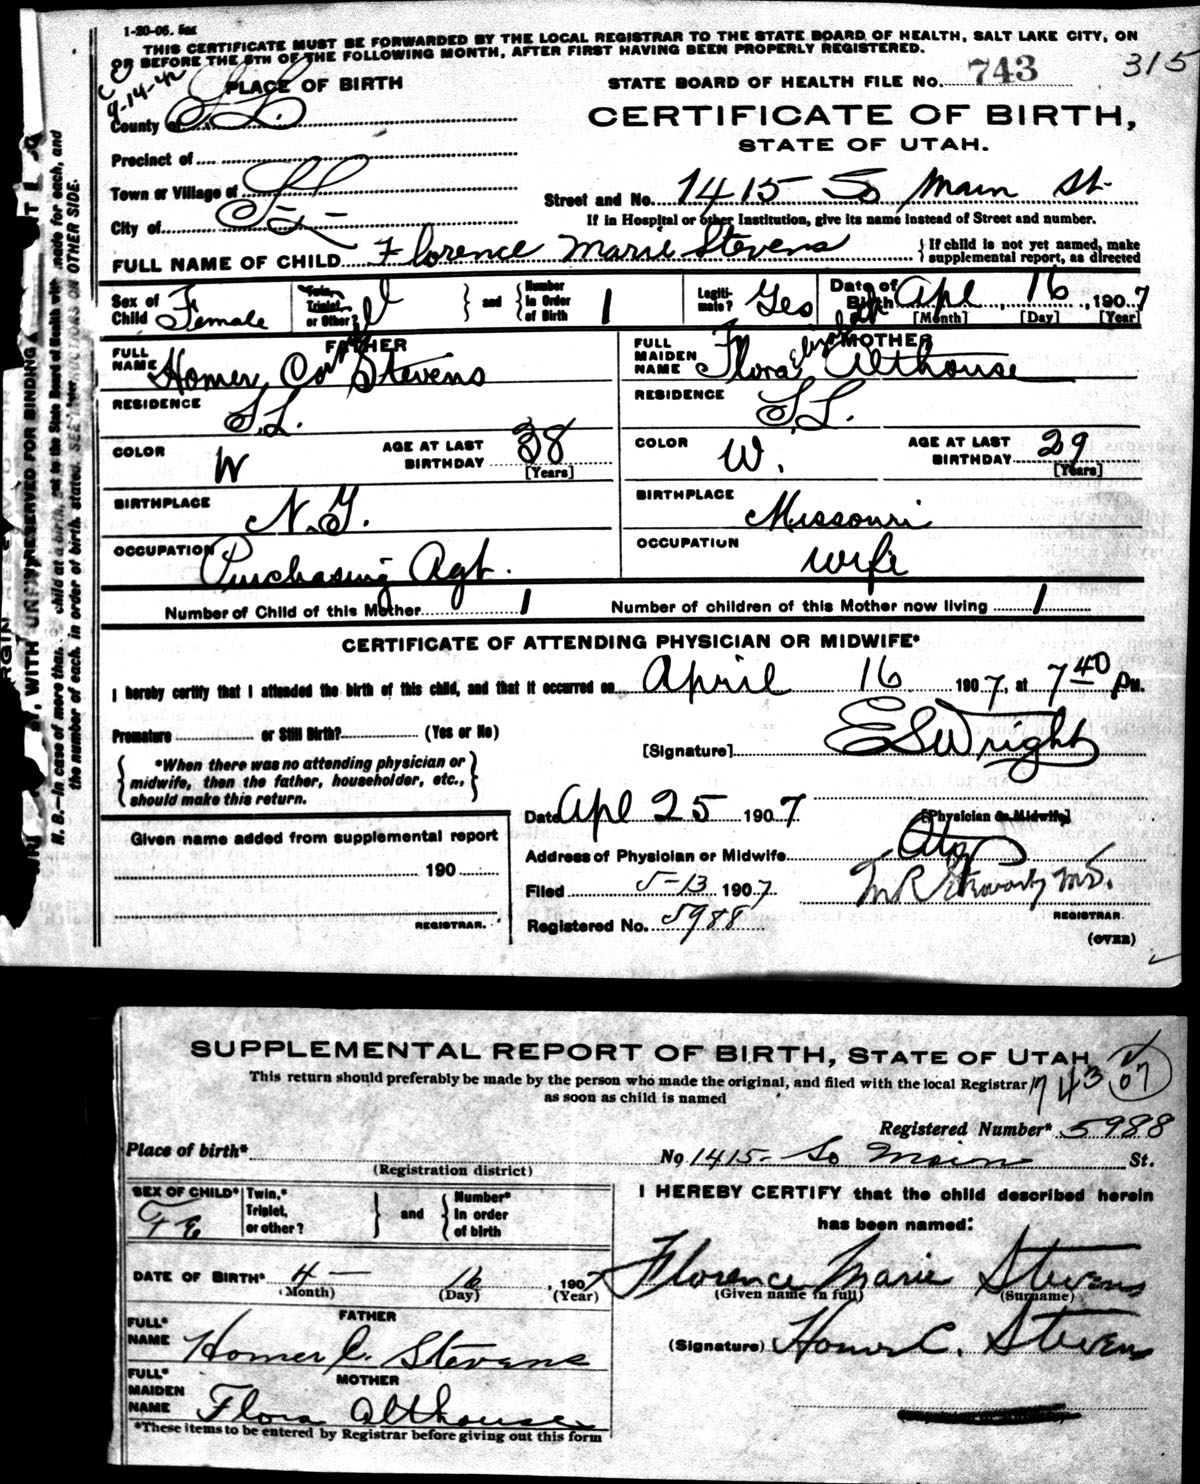 1-20-06. 5m
THIS CERTIFICATE MUST BE FORWARDED BY THE LOCAL REGISTRAR TO THE STATE BOARD OF HEALTH, SALT LAKE CITY, ON
OR BEFORE THE 5TH OF THE FOLLOWING MONTH, AFTER FIRST HAVING BEEN PROPERLY REGISTERED.
315
9-14-42
PLACE OF BIRTH
STATE BOARD OF HEALTH FILE NO. 743
County of S.L.
CERTIFICATE OF BIRTH,
STATE OF UTAH.
Precinct of
Town or Village of
City of S.L.
Street and No. 1415 So Main St.
If in Hospital or other Institution, give its name instead of Street and number.
FULL NAME OF CHILD Florence Marie Stevens
If child is not yet named, make
supplemental report, as directed
Sex of Child Female
Twin, Triplet, or Other?
and
Number in Order of Birth 1
Legitimate? Yes
Date of Birth Apl 16, 1907
[Month] [Day] [Year]
FATHER
FULL NAME Homer Stevens
RESIDENCE S.L.
COLOR W
AGE AT LAST BIRTHDAY 38
[Years]
BIRTHPLACE N.Y.
OCCUPATION Purchasing Agt.
MOTHER
FULL MAIDEN NAME Flora Elizabeth Althouse
RESIDENCE S.L.
COLOR W.
AGE AT LAST BIRTHDAY 29
[Years]
BIRTHPLACE Missouri
OCCUPATION Wife
Number of Child of this Mother 1
Number of children of this Mother now living 1
CERTIFICATE OF ATTENDING PHYSICIAN OR MIDWIFE*
I hereby certify that I attended the birth of this child, and that it occurred on April 16 1907, at 7 40 PM.
Premature or Still Birth? (Yes or No)
[Signature] E S Wright
*When there was no attending physician or
midwife, then the father, householder, etc.,
should make this return.
Date Apl 25 1907
[Physician or Midwife]
Given name added from supplemental report
190
REGISTRAR.
Address of Physician or Midwife
Filed 5-13 1907
M.D.
REGISTRAR
Registered No. 5988
(OVER)
SUPPLEMENTAL REPORT OF BIRTH, STATE OF UTAH
This return should preferably be made by the person who made the original, and filed with the local Registrar
as soon as child is named
743 07
Registered Number* 5988
Place of birth*
(Registration district)
No 1415- So Main St.
SEX OF CHILD* FE
Twin,* Triplet, or other?
and
Number* In order of birth
I HEREBY CERTIFY that the child described herein
has been named:
DATE OF BIRTH* 4 — 16, 1907
(Month) (Day) (Year)
Florence Marie Stevens
(Given name in full) (Surname)
FATHER
FULL* NAME Homer C. Stevens
(Signature) Homer C. Stevens
MOTHER
FULL* MAIDEN NAME Flora Althouse
*These items to be entered by Registrar before giving out this form